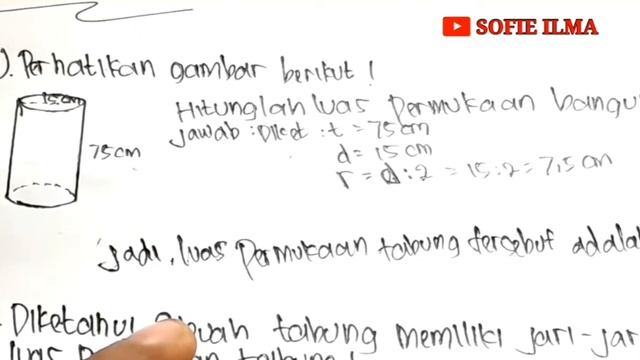 SOFIE ILMA
). Perhatikan gambar berikut !
15 cm
75 cm
Hitunglah luas Permukaan bangu
Jawab : Diket : t = 75 cm
d = 15 cm
r = d : 2 = 15 : 2 = 7,5 cm
Jadi, luas Permukaan tabung tersebut adalah
Diketahui tabung memiliki jari-jar
luas tabung !